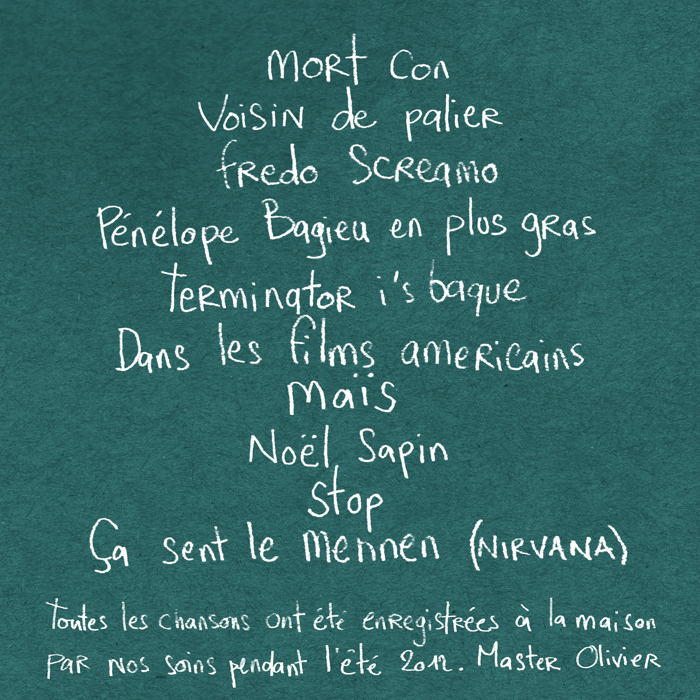 Mort Con
Voisin de palier
Fredo Screamo
Pénélope Bagieu en plus gras
Terminator i's baque
Dans les films americains
Maïs
Noël Sapin
Stop
Ça sent le mennen (NIRVANA)
Toutes les chansons ont été enregistrées à la maison
par nos soins pendant l'été 2012. Master Olivier